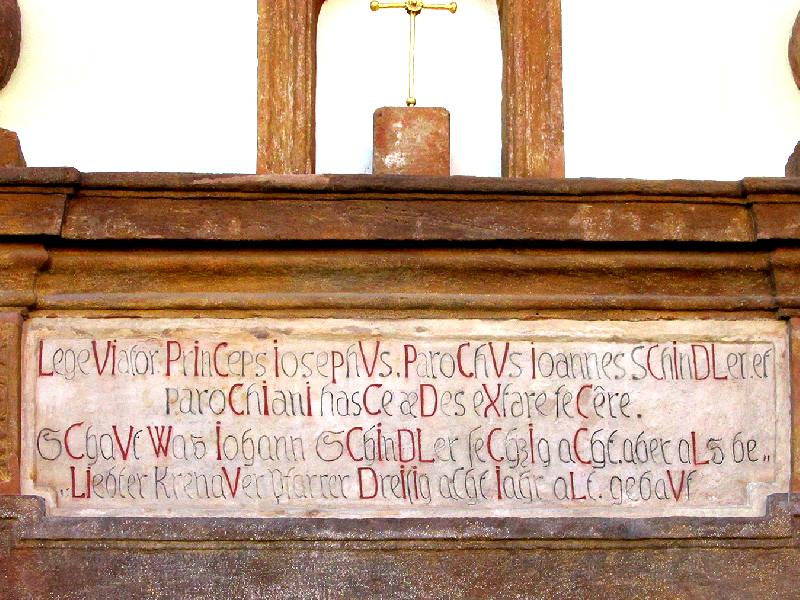 LegeViator. PrinCeps iosephVs. ParoChVs ioannes SChinDLer. et
paroChiani hasCe æDes eXtare feCêre.
SChaVt Was iohann SChinDLer seChzig aCht. aber aLs be„
„Liebter KrenaVer Pfarrer Dreisig acht iahr aLt. gebaVt